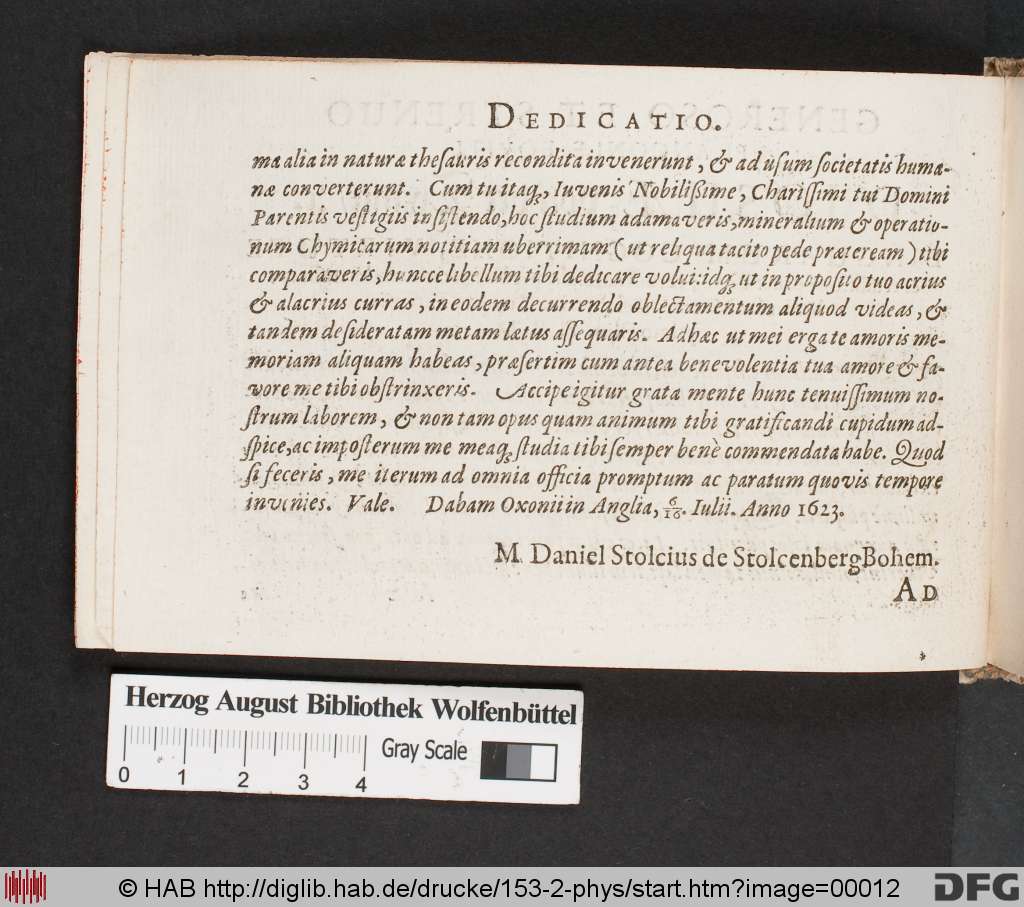 DEDICATIO.
ma alia in naturæ theſauris recondita invenerunt, & ad uſum ſocietatis huma-
næ converterunt. Cum tu itaq;, Iuvenis Nobilißime, Chariſſimi tui Domini
Parentis veſtigiis inſiſtendo, hoc ſtudium adamaveris, mineralium & operatio-
num Chymicarum notitiam uberrimam (ut reliqua tacito pede præteream) tibi
comparaveris, huncce libellum tibi dedicare volui: idq; ut in propoſito tuo acrius
& alacrius curras, in eodem decurrendo oblectamentum aliquod videas, &
tandem deſideratam metam lætus aſſequaris. Ad hæc ut mei erga te amoris me-
moriam aliquam habeas, præſertim cum antea benevolentia tua amore & fa-
vore me tibi obſtrinxeris. Accipe igitur grata mente hunc tenuiſſimum no-
ſtrum laborem, & non tam opus quam animum tibi gratificandi cupidum ad-
ſpice, ac impoſterum me meaq; ſtudia tibi ſemper benè commendata habe. Quod
ſi feceris, me iterum ad omnia officia promptum ac paratum quovis tempore
invenies. Vale. Dabam Oxonii in Anglia, 6/16. Iulii. Anno 1623.
M. Daniel Stolcius de Stolcenberg Bohem.
AD
*
Herzog August Bibliothek Wolfenbüttel
Gray Scale
0 1 2 3 4
© HAB http://diglib.hab.de/drucke/153-2-phys/start.htm?image=00012
DFG